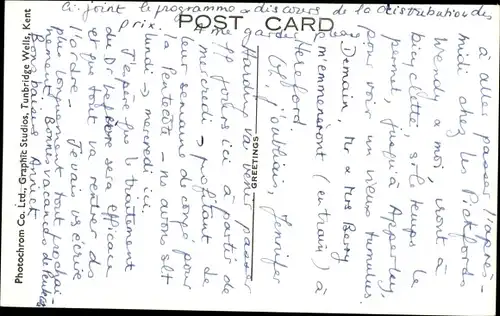 Ci-joint le programme & discours de la distribution des
prix.
POST CARD
à garder please
à aller passer l'après-
midi chez les Pickfords
Wendy & moi, iront à
bicyclette si le temps le
permet, jusqu'à Apperley,
pour voir un vieux tumulus.
Demain, Mr & Mrs Berry
m'emmèneront (en train) à
Hereford
Oh, j'oubliais, Jennifer
Harding va venir passer
GREETINGS
jours ici à partir de
mercredi → profitant de
leur semaine de congé pour
la Pentecôte - ns avons slt
lundi → mercredi ici.
J'espère que le traitement
du Dr sera efficace
et que tout va rentrer ds
l'ordre - Je vais vs écrire
plus longuement tout prochai-
nement, Bonnes vacances de Pentecôte
Bons baisers Annick
Photochrom Co. Ltd., Graphic Studios, Tunbridge Wells, Kent